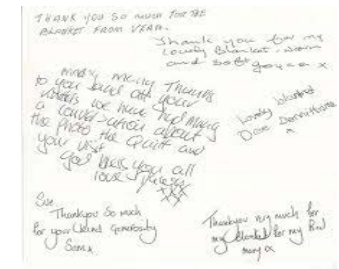 THANK YOU SO MUCH FOR THE
BLANKET FROM VERA.
Thank you for my
Lovely Blanket. warm
and soft x
Many many Thanks
to you and all your
we have had many
a conversation about
the photo the Quilt and
your visit
god bless you all
love
xxx
Lovely blanket
Dave
x
Sue
Thankyou So much
for your kind Generosity
x
Thankyou very much for
my Blanket for my Bed
x